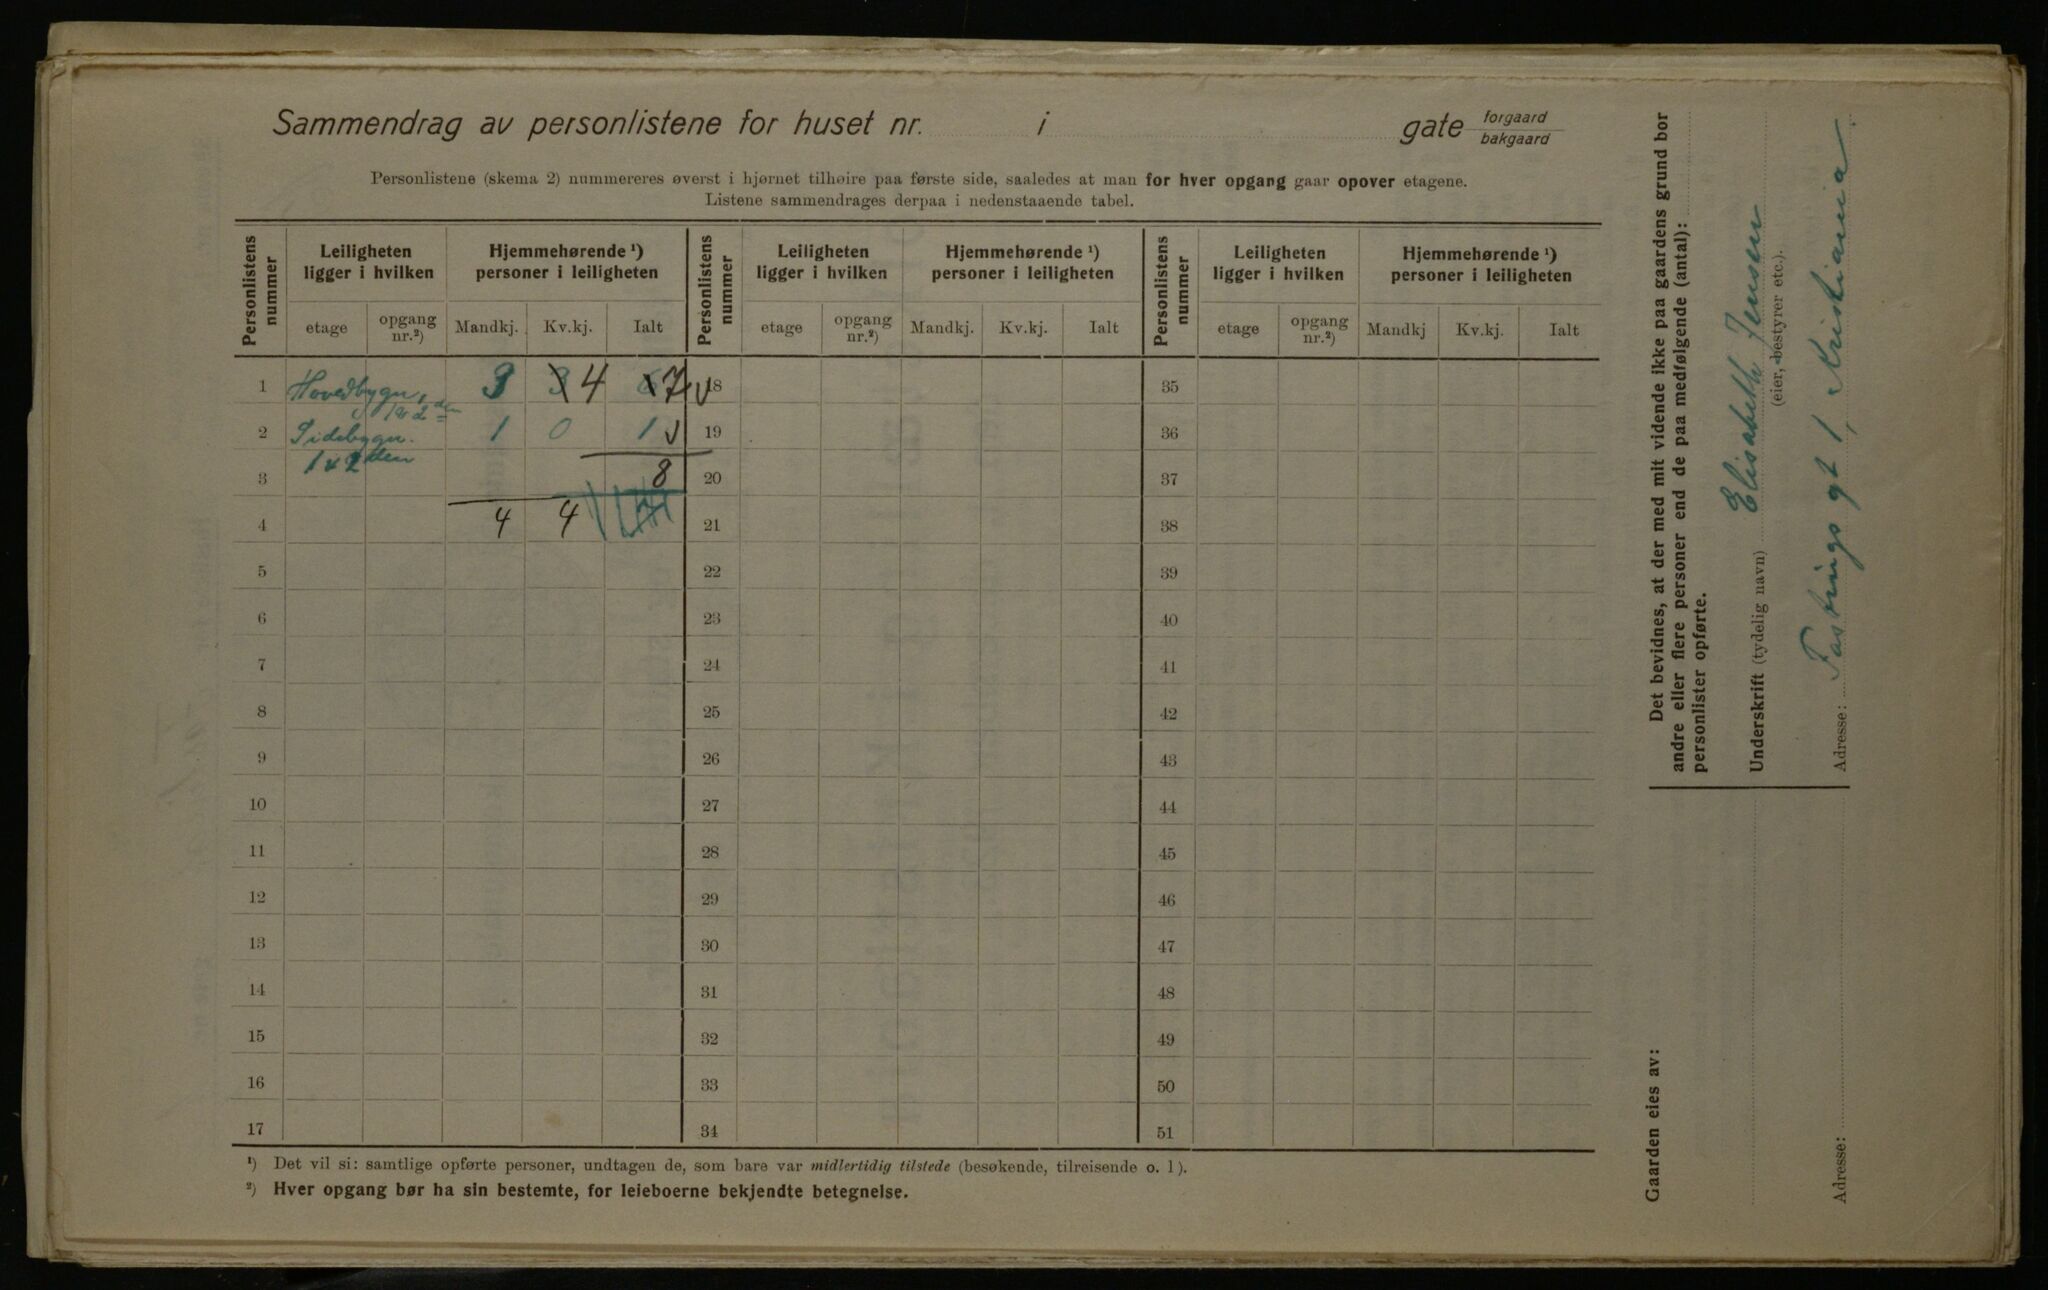 Sammendrag av personlistene for huset nr. i gate forgaard bakgaard
Personlistene (skema 2) nummereres øverst i hjørnet tilhøire paa første side, saaledes at man for hver opgang gaar opover etagene.
Listene sammendrages derpaa i nedenstaaende tabel.
Personlistens nummer Leiligheten ligger i hvilken Hjemmehørende ¹) personer i leiligheten Personlistens nummer Leiligheten ligger i hvilken Hjemmehørende ¹) personer i leiligheten Personlistens nummer Leiligheten ligger i hvilken Hjemmehørende ¹) personer i leiligheten
etage opgang nr.²) Mandkj. Kv.kj. Ialt etage opgang nr.²) Mandkj. Kv.kj. Ialt etage opgang nr.²) Mandkj Kv.kj. Ialt
1 Hovedbygn, 3 3 4 6 7 18 35
1 & 2 den
2 Sidebygn. 1 0 1 19 36
1 & 2 den
3 8 20 37
4 4 4 21 38
5 22 39
6 23 40
7 24 41
8 25 42
9 26 43
10 27 44
11 28 45
12 29 46
13 30 47
14 31 48
15 32 49
16 33 50
17 34 51
¹) Det vil si: samtlige opførte personer, undtagen de, som bare var midlertidig tilstede (besøkende, tilreisende o. l).
²) Hver opgang bør ha sin bestemte, for leieboerne bekjendte betegnelse.
Det bevidnes, at der med mit vidende ikke paa gaardens grund bor
andre eller flere personer end de paa medfølgende (antal):
personlister opførte.
Underskrift (tydelig navn) Elisabeth Jensen
(eier, bestyrer etc.).
Adresse: Fastings gt 1, Kristiania.
Gaarden eies av:
Adresse: